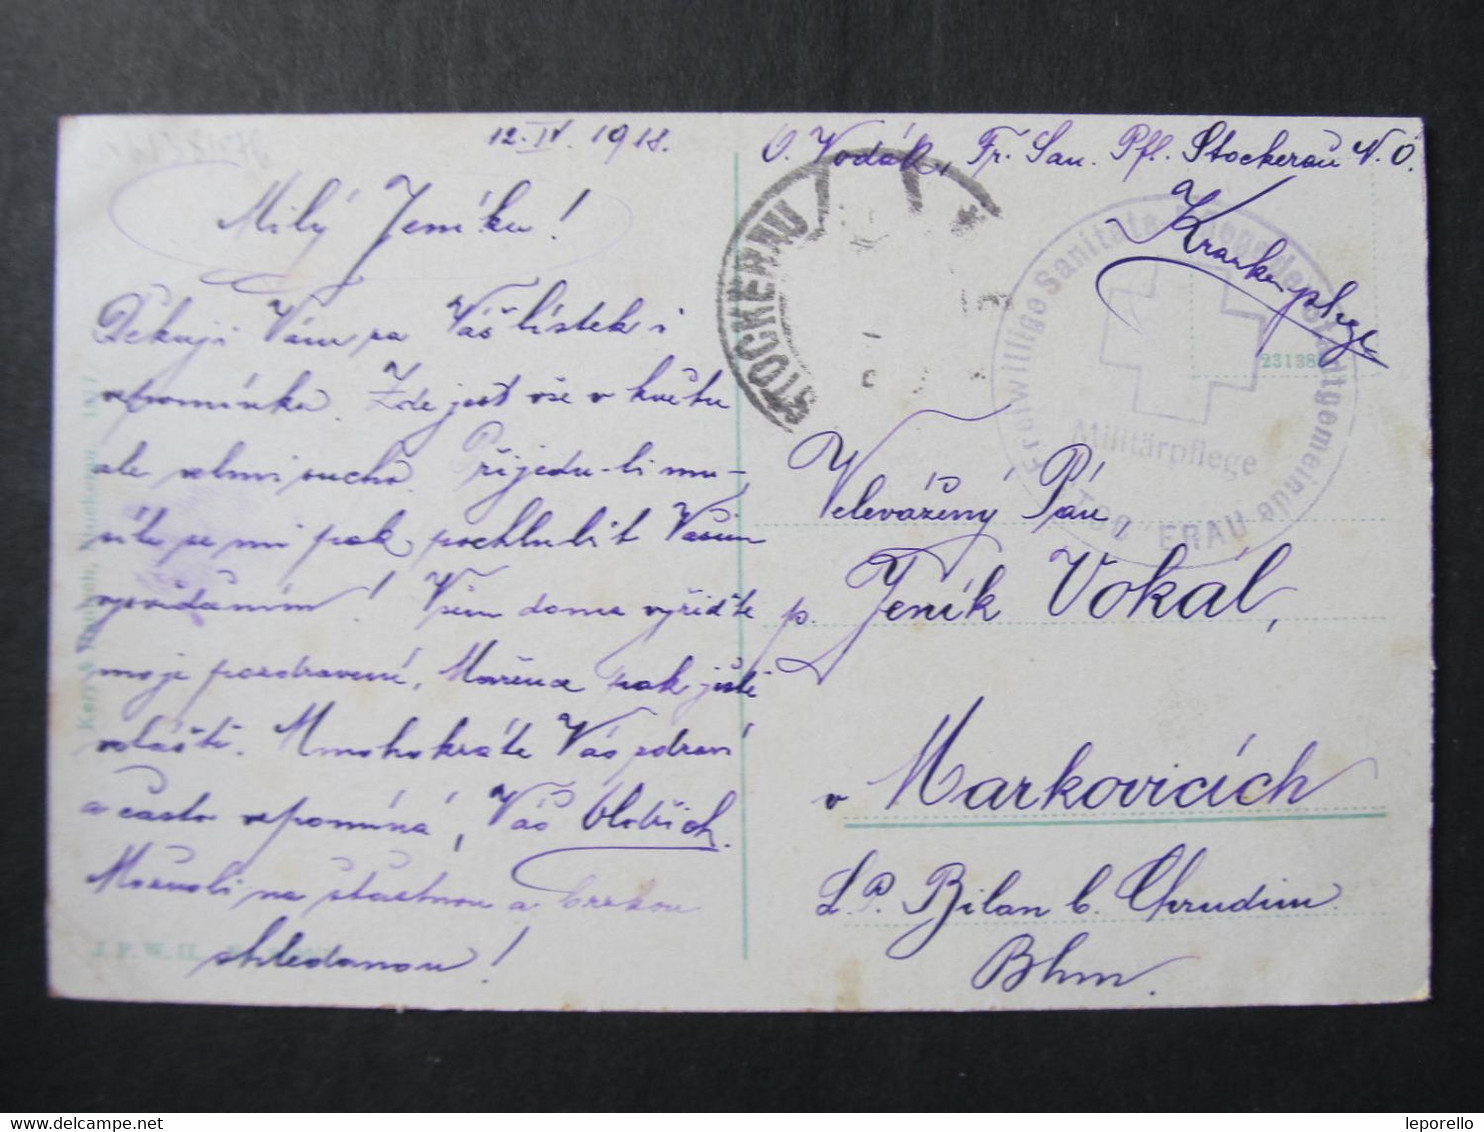 12. IV. 1918.
Milý Jeníku!
Děkuji Vám za Váš lístek i
vzpomínku. Zde jest vše v květu
ale velmi sucho. Přijedu-li mu-
síte se mi pak pochlubit Vaším
vyřiďte
moje pozdravení, Mařence pak ještě
zvláště. Mnohokráte Vás zdraví
a často vzpomíná, Váš Oldřich.
na šťastnou a brzkou
shledanou!
O. Vodák, Fr. San. Pfl. Stockerau N. Ö.
Krankenpflege
STOCKERAU
Freiwillige Sanitäts
Stadtgemeinde
Militärpflege
ERAU
23138
Velevážený Pán,
p. Jeník Vokál,
v Markovicích
L. P. Bilan b. Chrudim
Bhm.
1917
leporello